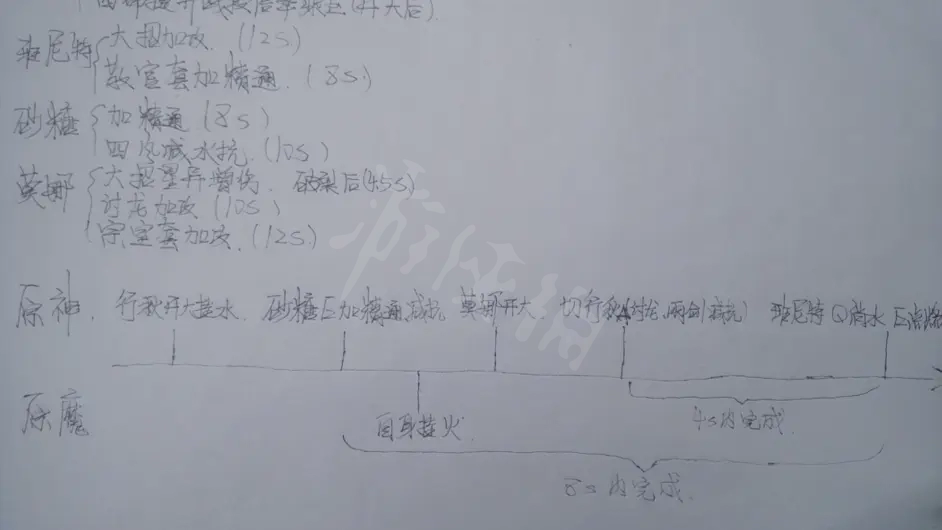 班尼特 大招加攻.(12s)
教官套加精通.(8s)
砂糖 加精通(8s)
四风减水抗.(10s)
莫娜 大招星异增伤. 破裂后(4.5s)
讨龙加攻(10s)
宗室套加攻.(12s)
原神. 行秋开大挂水. 砂糖E加精通,减抗 莫娜开大. 切行秋(讨龙,雨剑减抗) 班尼特Q蒸水 E点燃
原魔 自身挂火. 4s内完成.
8s内完成.
游侠网